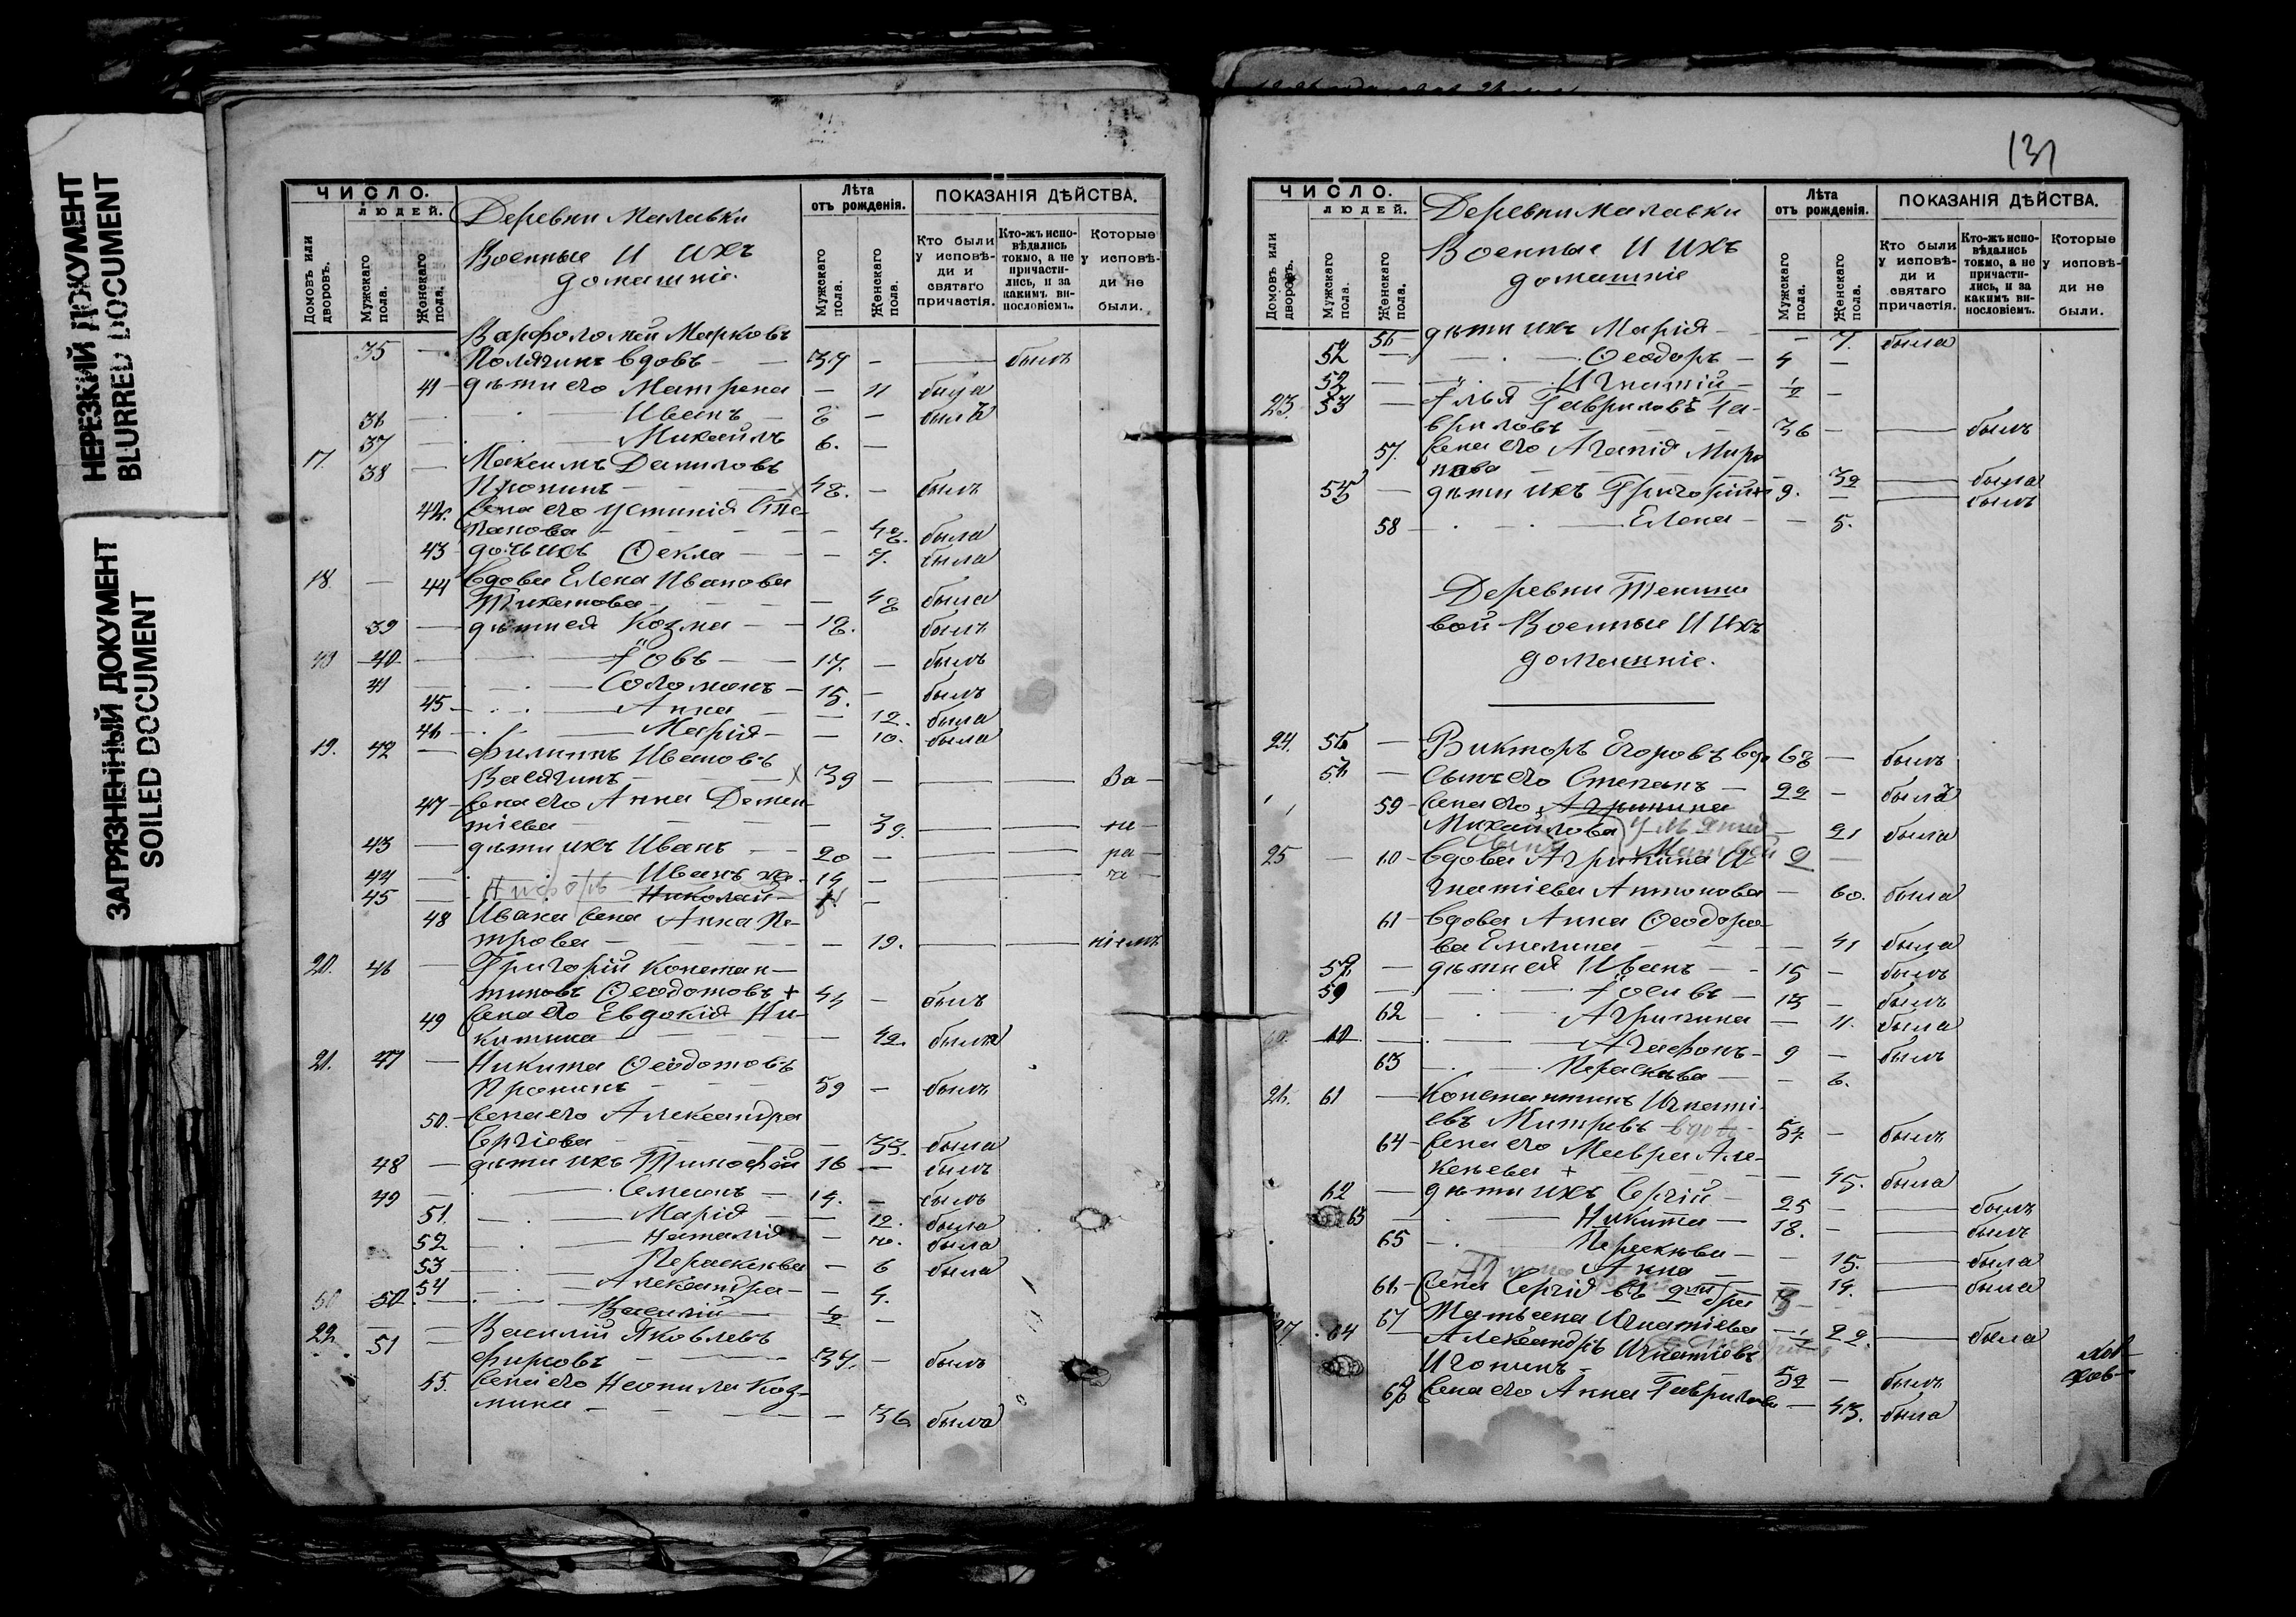 НЕРЕЗКИЙ ДОКУМЕНТ
BLURRED DOCUMENT
ЗАГРЯЗНЕННЫЙ ДОКУМЕНТ
SOILED DOCUMENT
ЧИСЛО.
ЛЮДЕЙ.
Домовъ или дворовъ.
Мужскаго пола.
Женскаго пола.
Деревни Малавки
Военные И ихъ
домашніе.
Лѣта
отъ рожденія.
Мужскаго пола.
Женскаго пола.
ПОКАЗАНІЯ ДѢЙСТВА.
Кто были у исповѣди и святаго причастія.
Кто-жъ исповѣдались токмо, а не причастились, и за какимъ винословіемъ.
Которые у исповѣди не были.
Варфоломей Марковъ
35 — Полячинъ вдовъ — 37 — — былъ
41 — дѣти его Матрена — 11 была
36 — Иванъ 8 — былъ
37 — Михаилъ 6. —
17. 38 — Максимъ Даниловъ
Пронинъ 48. — былъ
42. жена его Устинія Сте-
панова — 48. была
43 дочь ихъ Ѳекла — 7. была
18. — 44 вдова Елена Иванова
— 48 была
39 — дѣти ея Козма — 18. былъ
40 — Іовъ — 17. — былъ
41 — Соломонъ — 15. — былъ
45 — Анна — 12. была
46 — Марія — 10. была
19. 42 — Филиппъ Ивановъ
39 — — — За —
47 — жена его Анна Демен-
тіева — 39. — — не —
43 — дѣти ихъ Иванъ — 20 — — — ра —
44 — Иванъ 14 —
45 — Николай —
48 Ивана жена Анна Пе-
трова — 19. — — ніемъ
20. 46 — Григорій Констан-
тиновъ Ѳеодотовъ + 44 — былъ
49 жена его Евдокія Ни-
китина — 42. была
21. 47 — Никита Ѳеодотовъ
Пронинъ — 39 — былъ
50. жена его Александра
Сергіева — 33. была
48 — дѣти ихъ Тимофей 16 — былъ
49 — Симеонъ — 14. — былъ
51. — Марія — 12. была
52 — Наталія — 10. была
53 — Параскева — 6 была
54 — Александра — 4.
50. — Василій — ½ —
22. 51 — Василій Яковлевъ
Фирсовъ — 37. — былъ
55. жена его Неонила Коз-
мина — 36 была
131
ЧИСЛО.
ЛЮДЕЙ.
Домовъ или дворовъ.
Мужскаго пола.
Женскаго пола.
Деревни Малавки
Военные И ихъ
домашніе
Лѣта
отъ рожденія.
Мужскаго пола.
Женскаго пола.
ПОКАЗАНІЯ ДѢЙСТВА.
Кто были у исповѣди и святаго причастія.
Кто-жъ исповѣдались токмо, а не причастились, и за какимъ винословіемъ.
Которые у исповѣди не были.
56 — дѣти ихъ Марія — 7. была
52 — Ѳеодоръ — 4 —
52 — Игнатій — ½ —
23. 53 — Илья Гавриловъ Га-
вриловъ 36 — — былъ
57. жена его Агапія Миро-
нова — 32 — была
— дѣти ихъ Григорій 9. — — былъ
58 — Елена — 5.
Деревни
вой Военные И ихъ
домашніе.
24. — Викторъ Егоровъ 68 — былъ
— сынъ его Степанъ — 22 — былъ
59 — жена его Агрипина
Михайлова — 21 была
25 — 60 — вдова Агрипина И-
гнатіева Антонова — 60. была
61 — вдова Анна Ѳеодоро-
ва Емелина — 41 была
— дѣти ея Иванъ — 15 — былъ
59 — Іосифъ — 13 — былъ
62 — Агрипина — 11. была
60 — Агафонъ — 9 — былъ
63 — Параскева — 6.
26. 61 — Константинъ Игнаті-
евъ — былъ
64 — жена его Мавра Але-
ксѣева + — 45. была
62 — дѣти ихъ Сергій — 25 — — былъ
63 — Никита — 18. — — былъ
65 — Параскева — 15. — была
Анна — 14. — была
66 — жена Сергія
67 Татьяна Игнатіева — 22. — была
27. 64 — Александръ Игнатіевъ
— 52 — былъ
68 жена его Анна Гаврилова — 43. была